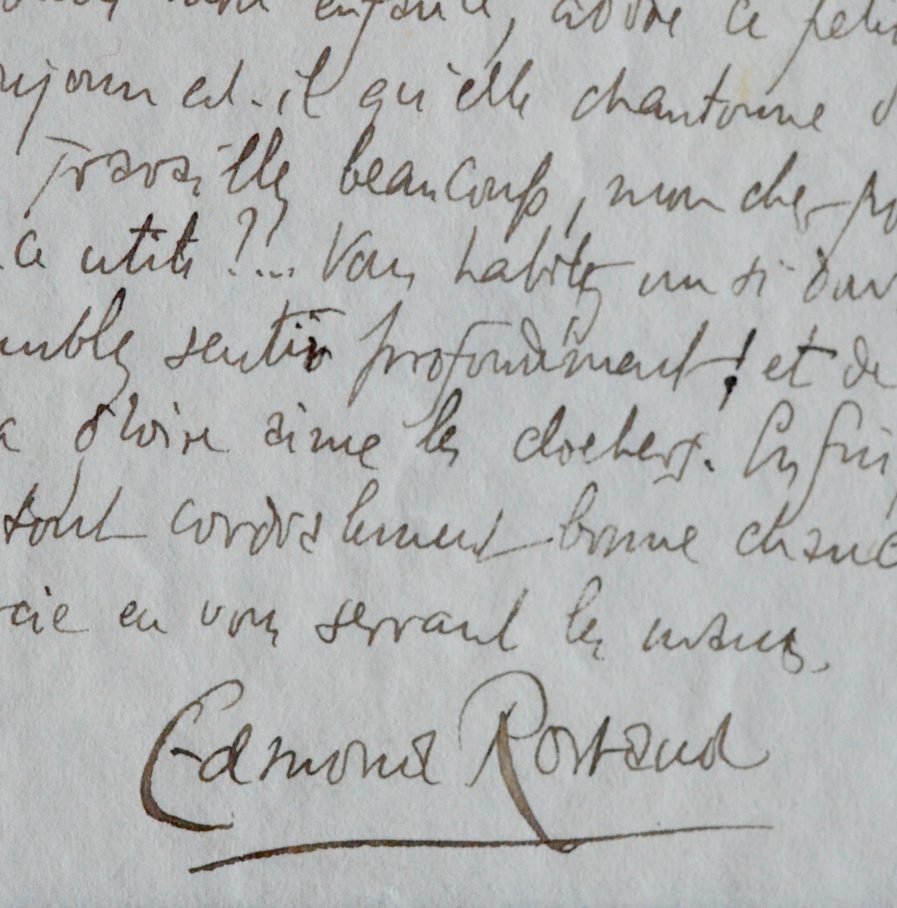 votre enfance, adore ce petit
toujours est-il qu'elle chantonne d
Travaillez beaucoup, mon cher po
ce utile ?!... Vous habitez un si
semblez sentir profondément ! et de
a gloire aime les clochers. Enfin,
sont cordialement bonne chance
rcie en vous serrant les mains.
Edmond Rostand